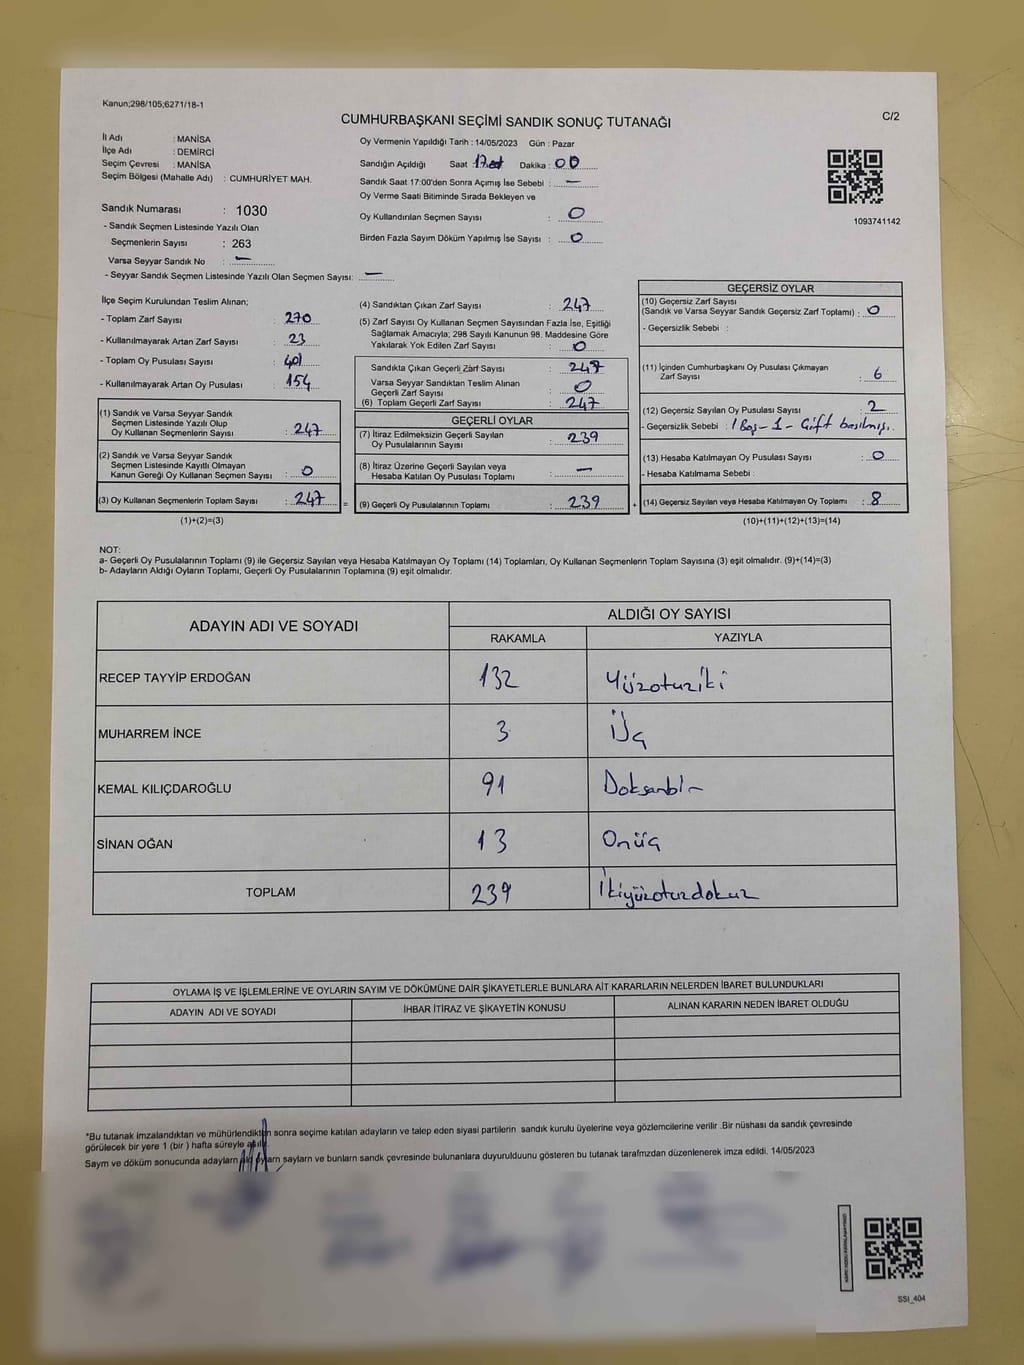 Kanun;298/105;6271/18-1
C/2
CUMHURBAŞKANI SEÇİMİ SANDIK SONUÇ TUTANAĞI
İl Adı : MANİSA
İlçe Adı : DEMİRCİ
Seçim Çevresi : MANİSA
Seçim Bölgesi (Mahalle Adı) : CUMHURİYET MAH.
Sandık Numarası : 1030
- Sandık Seçmen Listesinde Yazılı Olan
Seçmenlerin Sayısı : 263
Varsa Seyyar Sandık No : —
- Seyyar Sandık Seçmen Listesinde Yazılı Olan Seçmen Sayısı: —
Oy Vermenin Yapıldığı Tarih : 14/05/2023 Gün : Pazar
Sandığın Açıldığı Saat : 17.00 Dakika : 00
Sandık Saat 17:00'den Sonra Açımış İse Sebebi : —
Oy Verme Saati Bitiminde Sırada Bekleyen ve
Oy Kullandırılan Seçmen Sayısı : 0
Birden Fazla Sayım Döküm Yapılmış İse Sayısı : 0
1093741142
İlçe Seçim Kurulundan Teslim Alınan;
- Toplam Zarf Sayısı : 270
- Kullanılmayarak Artan Zarf Sayısı : 23
- Toplam Oy Pusulası Sayısı : 401
- Kullanılmayarak Artan Oy Pusulası : 154
(1) Sandık ve Varsa Seyyar Sandık
Seçmen Listesinde Yazılı Olup
Oy Kullanan Seçmenlerin Sayısı : 247
(2) Sandık ve Varsa Seyyar Sandık
Seçmen Listesinde Kayıtlı Olmayan
Kanun Gereği Oy Kullanan Seçmen Sayısı : 0
(3) Oy Kullanan Seçmenlerin Toplam Sayısı : 247 =
(1)+(2)=(3)
(4) Sandıktan Çıkan Zarf Sayısı : 247
(5) Zarf Sayısı Oy Kullanan Seçmen Sayısından Fazla İse, Eşitliği
Sağlamak Amacıyla; 298 Sayılı Kanunun 98. Maddesine Göre
Yakılarak Yok Edilen Zarf Sayısı : 0
Sandıkta Çıkan Geçerli Zarf Sayısı : 247
Varsa Seyyar Sandıktan Teslim Alınan
Geçerli Zarf Sayısı : 0
(6) Toplam Geçerli Zarf Sayısı : 247
GEÇERLİ OYLAR
(7) İtiraz Edilmeksizin Geçerli Sayılan
Oy Pusulalarının Sayısı : 239
(8) İtiraz Üzerine Geçerli Sayılan veya
Hesaba Katılan Oy Pusulası Toplamı : —
(9) Geçerli Oy Pusulalarının Toplamı : 239 +
GEÇERSİZ OYLAR
(10) Geçersiz Zarf Sayısı
(Sandık ve Varsa Seyyar Sandık Geçersiz Zarf Toplamı) : 0
- Geçersizlik Sebebi :
(11) İçinden Cumhurbaşkanı Oy Pusulası Çıkmayan
Zarf Sayısı : 6
(12) Geçersiz Sayılan Oy Pusulası Sayısı : 2
- Geçersizlik Sebebi : 1 Boş - 1 - Çift basılmış.
(13) Hesaba Katılmayan Oy Pusulası Sayısı : 0
- Hesaba Katılmama Sebebi :
(14) Geçersiz Sayılan veya Hesaba Katılmayan Oy Toplamı : 8
(10)+(11)+(12)+(13)=(14)
NOT:
a- Geçerli Oy Pusulalarının Toplamı (9) ile Geçersiz Sayılan veya Hesaba Katılmayan Oy Toplamı (14) Toplamları, Oy Kullanan Seçmenlerin Toplam Sayısına (3) eşit olmalıdır. (9)+(14)=(3)
b- Adayların Aldığı Oyların Toplamı, Geçerli Oy Pusulalarının Toplamına (9) eşit olmalıdır.
ADAYIN ADI VE SOYADI
ALDIĞI OY SAYISI
RAKAMLA YAZIYLA
RECEP TAYYİP ERDOĞAN 132 Yüzotuziki
MUHARREM İNCE 3 Üç
KEMAL KILIÇDAROĞLU 91 Doksanbir
SİNAN OĞAN 13 Onüç
TOPLAM 239 İkiyüzotuzdokuz
OYLAMA İŞ VE İŞLEMLERİNE VE OYLARIN SAYIM VE DÖKÜMÜNE DAİR ŞİKAYETLERLE BUNLARA AİT KARARLARIN NELERDEN İBARET BULUNDUKLARI
ADAYIN ADI VE SOYADI İHBAR İTİRAZ VE ŞİKAYETİN KONUSU ALINAN KARARIN NEDEN İBARET OLDUĞU
*Bu tutanak imzalandıktan ve mühürlendikten sonra seçime katılan adayların ve talep eden siyasi partilerin sandık kurulu üyelerine veya gözlemcilerine verilir .Bir nüshası da sandık çevresinde
görülecek bir yere 1 (bir ) hafta süreyle asılır.
Saym ve döküm sonucunda adaylarn ald oylarn saylarn ve bunlarn sandk çevresinde bulunanlara duyurulduunu gösteren bu tutanak tarafmzdan düzenlenerek imza edildi. 14/05/2023
SSI_404